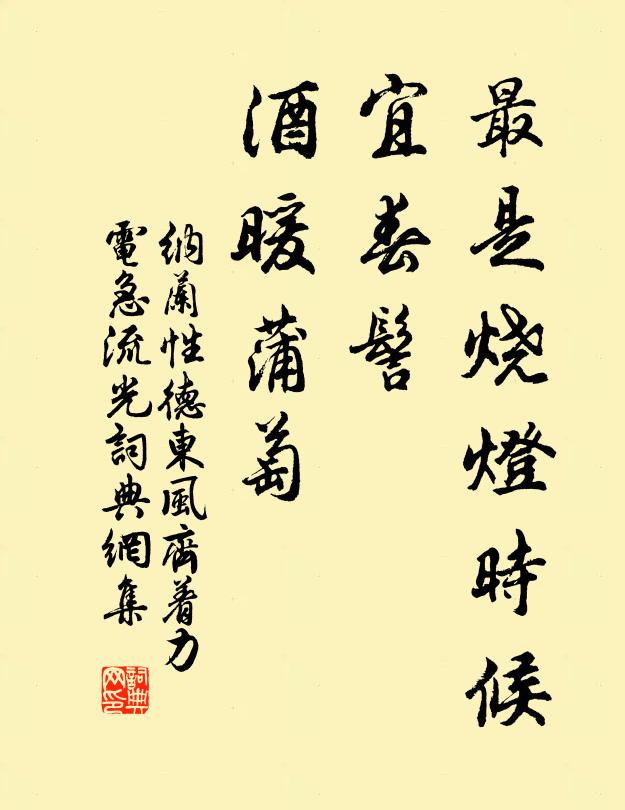 最是烧燈時候
宜春髻
酒暖蒲萄
納蘭性德東風齊着力
電急流光詞典網集
詞典
网印